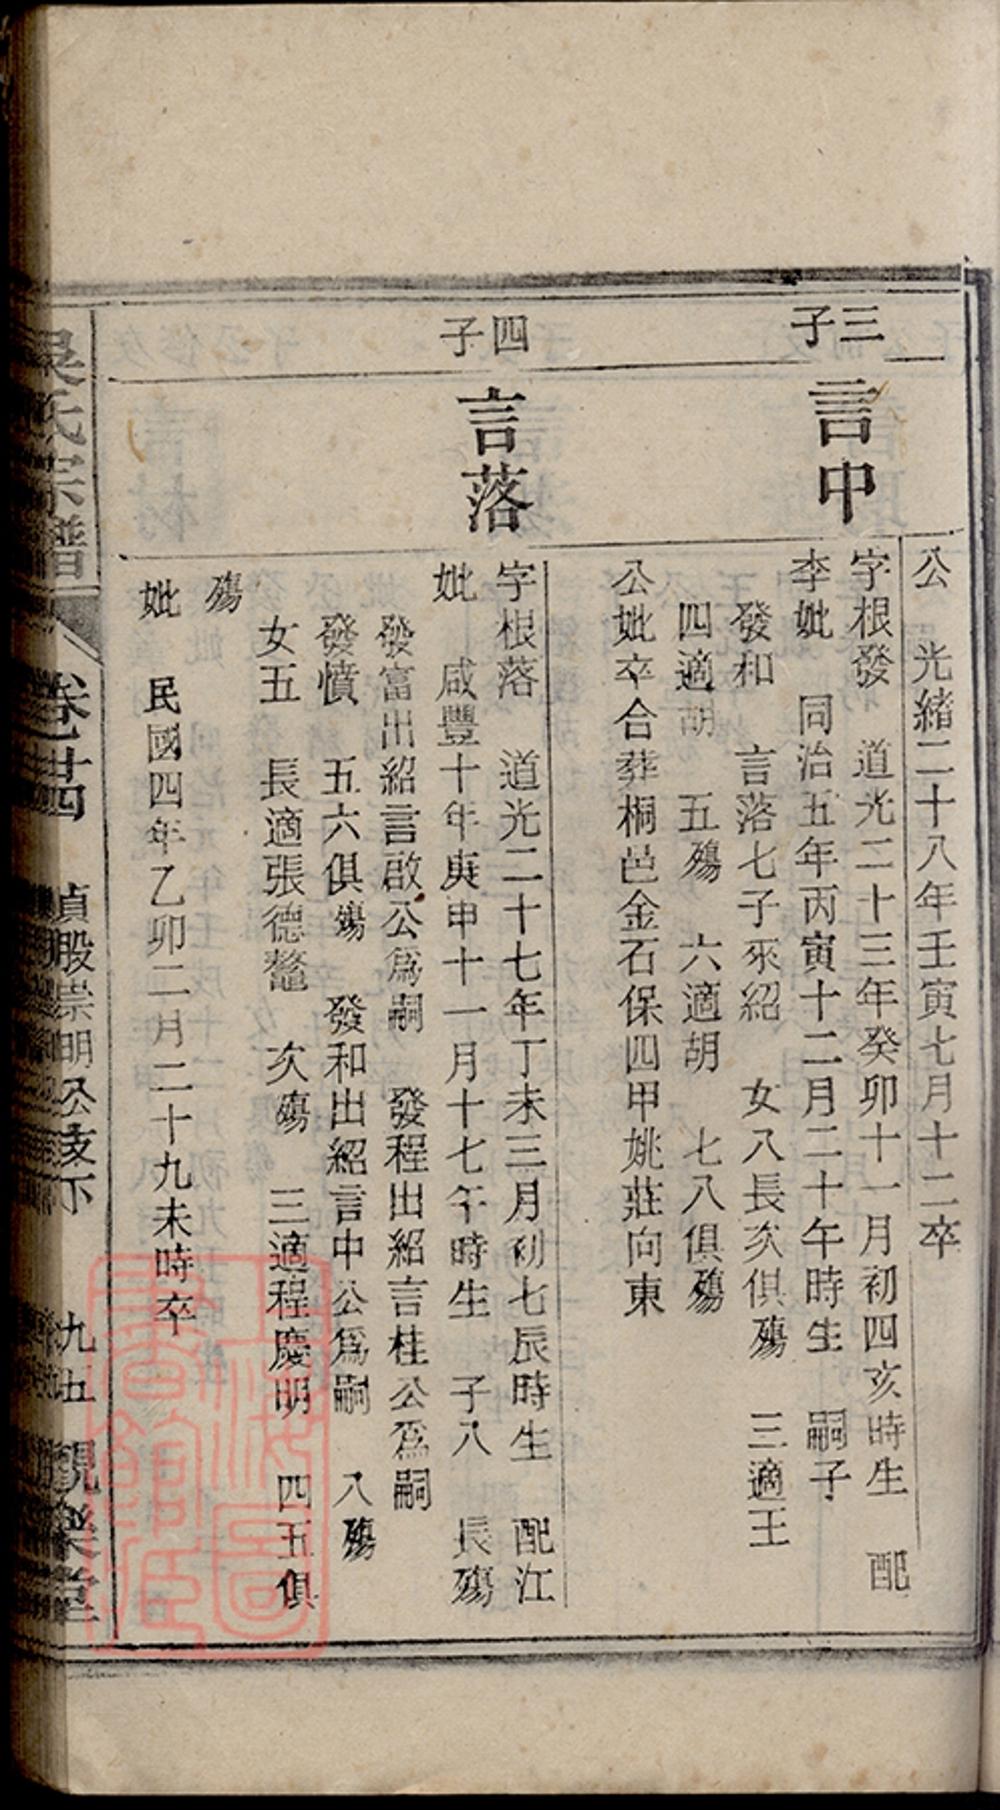 公 光緒二十八年壬寅七月十二卒
三子
言中
字根發 道光二十三年癸卯十一月初四亥時生 配
李妣 同治五年丙寅十二月二十午時生 嗣子
發和 言落七子來紹 女八長次俱殤 三適王
四適胡 五殤 六適胡 七八俱殤
公妣卒合葬桐邑金石保四甲姚莊向東
四子
言落
字根落 道光二十七年丁未三月初七辰時生 配江
妣 咸豐十年庚申十一月十七午時生 子八 長殤
發富出紹言啟公爲嗣 發程出紹言桂公爲嗣
發憤 五六俱殤 發和出紹言中公爲嗣 八殤
女五 長適張德鰲 次殤 三適程慶明 四五俱
殤
妣 民國四年乙卯二月二十九未時卒
吳氏宗譜 卷廿四 貞股崇明公支下 九五 觀樂堂
上海圖書館藏